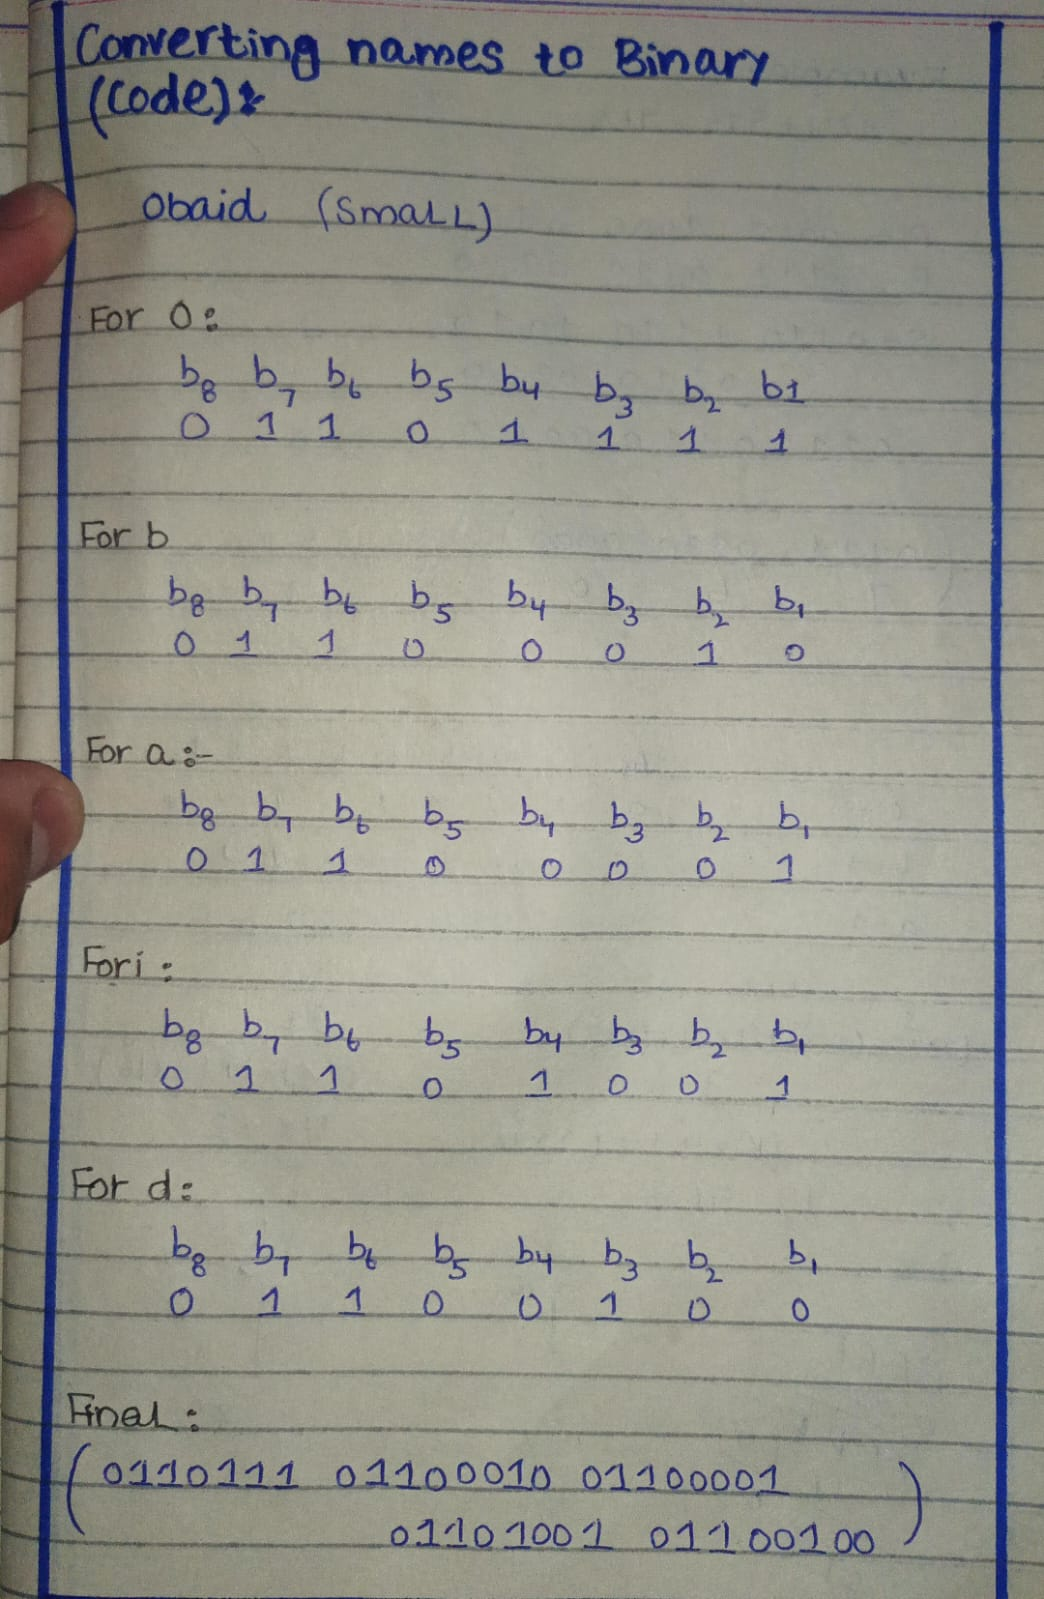 Converting names to Binary
(Code):
obaid (SmaLL)
For o:
b8 b7 b6 b5 b4 b3 b2 b1
0 1 1 0 1 1 1 1
For b
b8 b7 b6 b5 b4 b3 b2 b1
0 1 1 0 0 0 1 0
For a:-
b8 b7 b6 b5 b4 b3 b2 b1
0 1 1 0 0 0 0 1
For i:
b8 b7 b6 b5 b4 b3 b2 b1
0 1 1 0 1 0 0 1
For d:
b8 b7 b6 b5 b4 b3 b2 b1
0 1 1 0 0 1 0 0
Final:
(0110111 01100010 01100001
01101001 01100100)